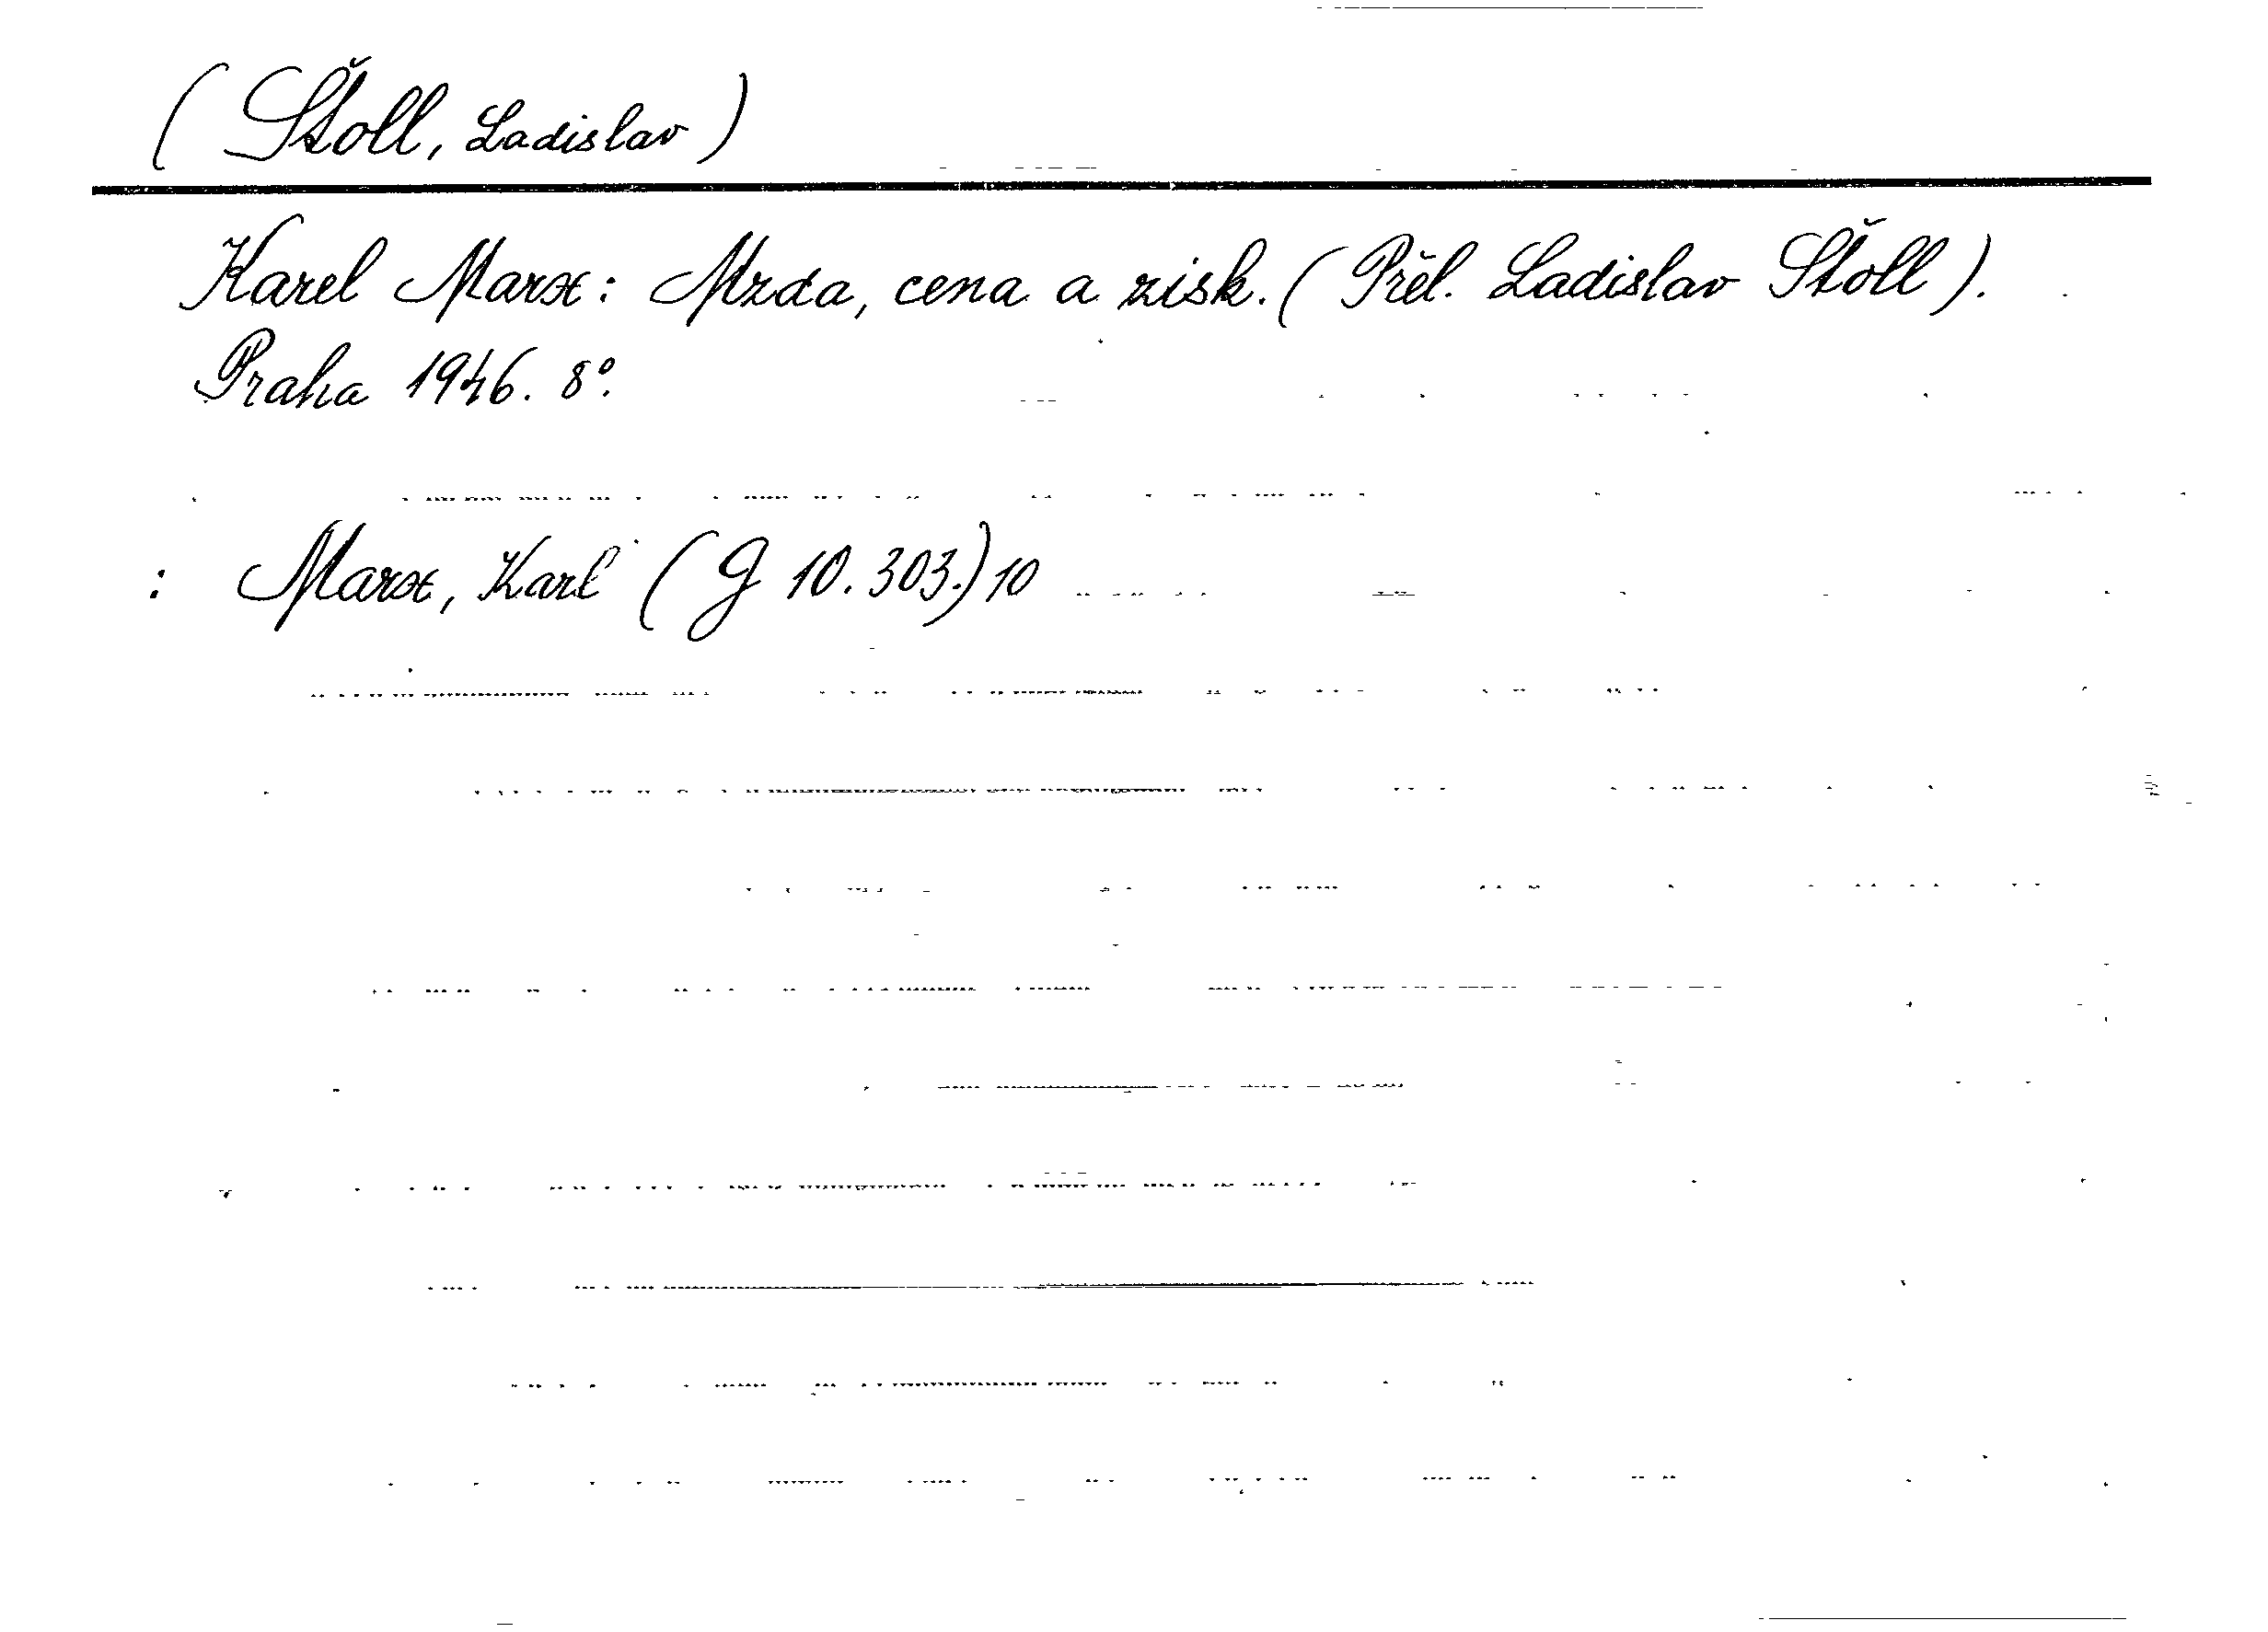 (Štoll, Ladislav)
Karel Marx: Mzda, cena a zisk. (Přel. Ladislav Štoll).
Praha 1946. 8°.
: Marx, Karl (G 10.303.) 10